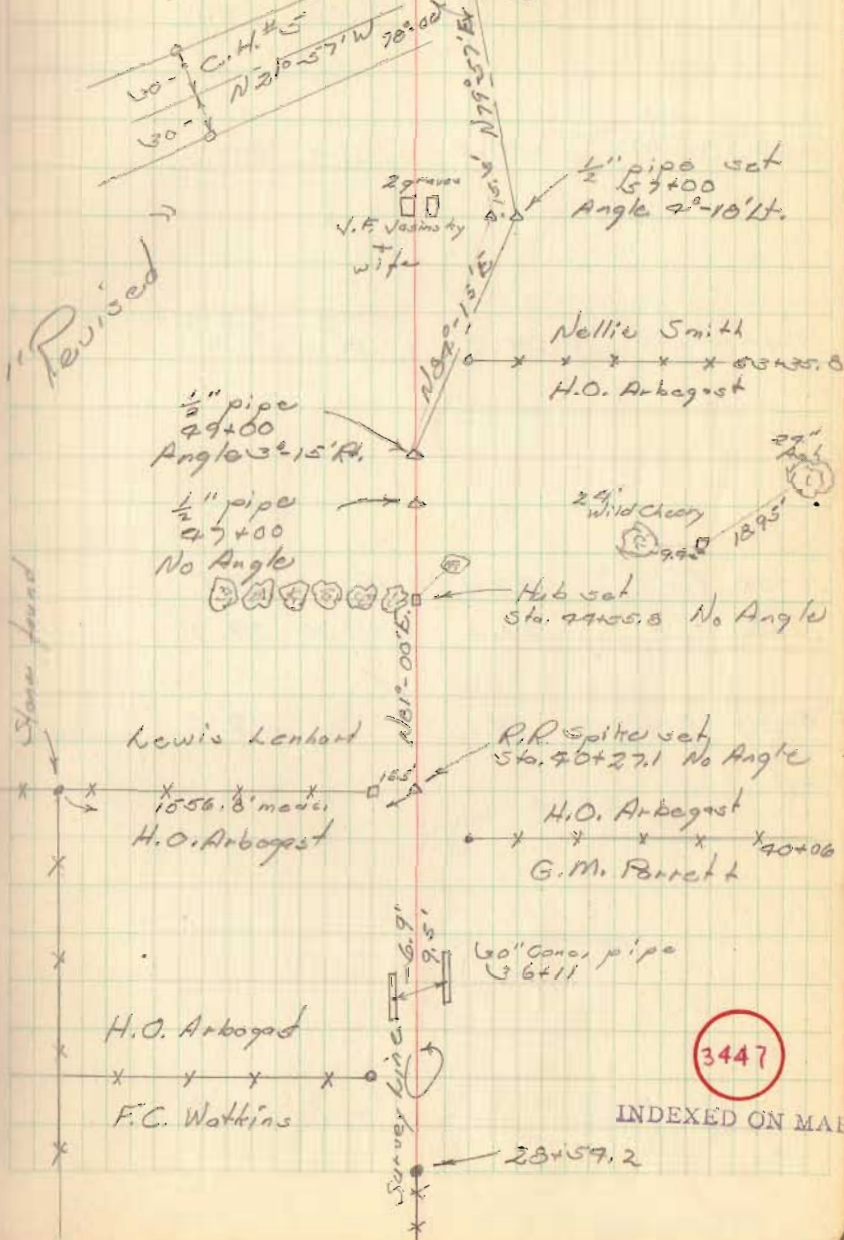 C.H. #5
30'
N 21°-57' W 78°-00'
30'
N79°-57'E
2 graves
V.F. Vasinsky
+
wife
9.5'
1/2" pipe set
57+00
Angle 4°-18' Lt.
"Revised"
N84°-15'E
Nellie Smith
53+35.8
H.O. Arbogast
1/2" pipe
49+00
Angle 3°-15' Rt.
1/2" pipe
47+00
No Angle
24"
Ash
24"
Wild Cherry
18.95'
Hub set
Sta. 44+55.8 No Angle
N81°-00'E.
Stone found
Lewis Lenhart
R.R. Spike set
Sta. 40+27.1 No Angle
16.5'
1556.8' meas.
H.O. Arbogast
H.O. Arbogast
40+06
G.M. Parrett
6.9'
9.5'
30" Conc. pipe
36+11
H.O. Arbogast
F.C. Watkins
Survey Line
3447
INDEXED ON MAP
28+59.2